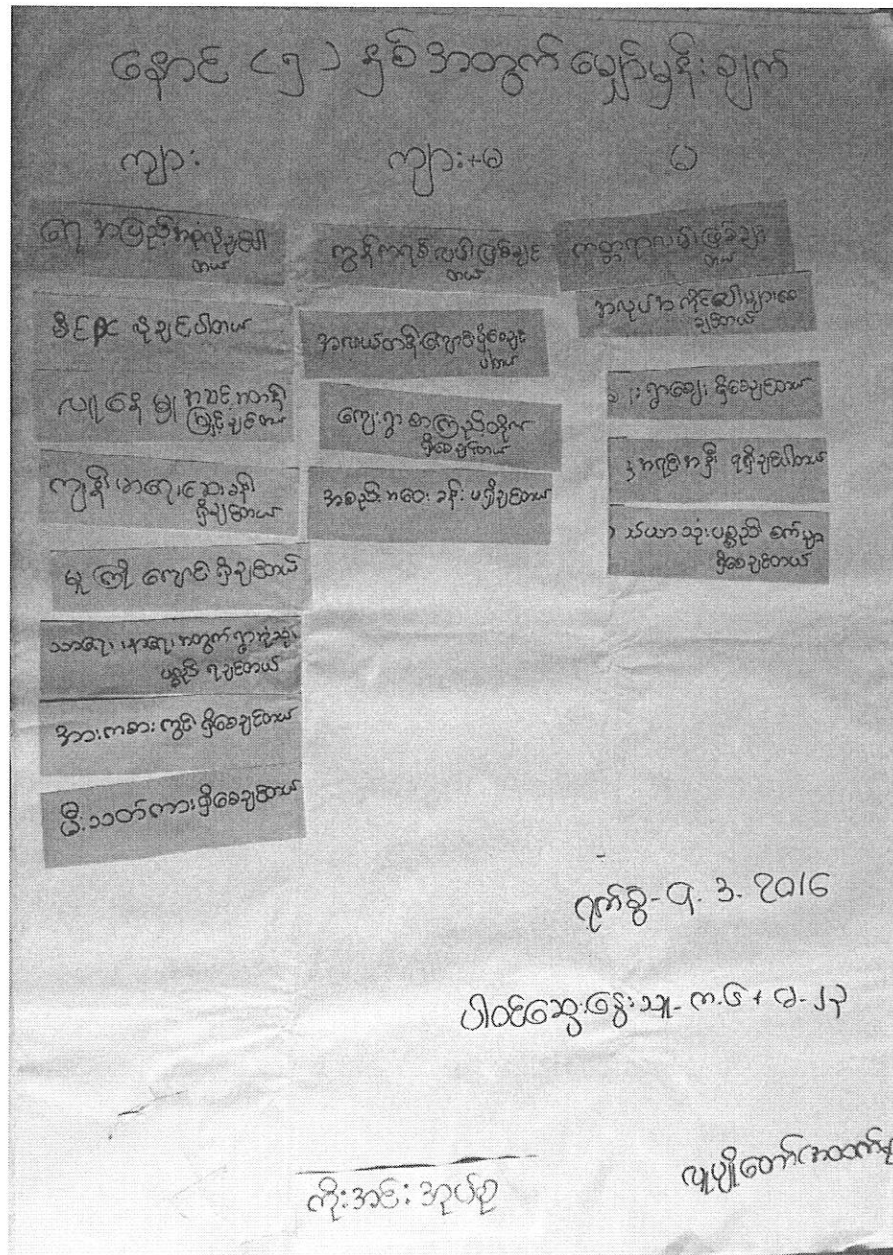 နောင် (၅) နှစ်အတွက် မျှော်မှန်းချက်
ကျား
ကျား+မ
မ
ရေ အပြည့်အစုံလိုချင်
တယ်
မီး လိုချင်ပါတယ်
လူနေမှု အဆင့်အတန်း
မြှင့်ချင်တယ်
ကျန်းမာရေးဆေးခန်း
ရှိချင်တယ်
မူကြို ကျောင်းရှိချင်တယ်
သာရေး၊ နာရေး အတွက် ရွာသုံး
ပစ္စည်း ရချင်တယ်
အားကစားကွင်း ရှိစေချင်တယ်
မီးသတ်ကား ရှိစေချင်တယ်
ကွန်ကရစ်လမ်း ဖြစ်ချင်
တယ်
အလယ်တန်းကျောင်းရှိစေချင်
ပါတယ်
ကျေးရွာ စာကြည့်တိုက်
ရှိစေချင်တယ်
အစည်းအဝေး ခန်းမ ရှိချင်တယ်
ကတ္တရာလမ်း ဖြစ်ချင်
တယ်
အလုပ်အကိုင် ပေါများစေ
ချင်တယ်
ရွာဈေး ရှိစေချင်တယ်
အရင်းအနှီး ရရှိချင်ပါတယ်
လယ်ယာသုံးပစ္စည်း စက်များ
ရှိစေချင်တယ်
ရက်စွဲ- ၃. 2016
ပါဝင်ဆွေးနွေးသူ- က.၆ + မ-၂၃
ကိုးအင်း အုပ်စု